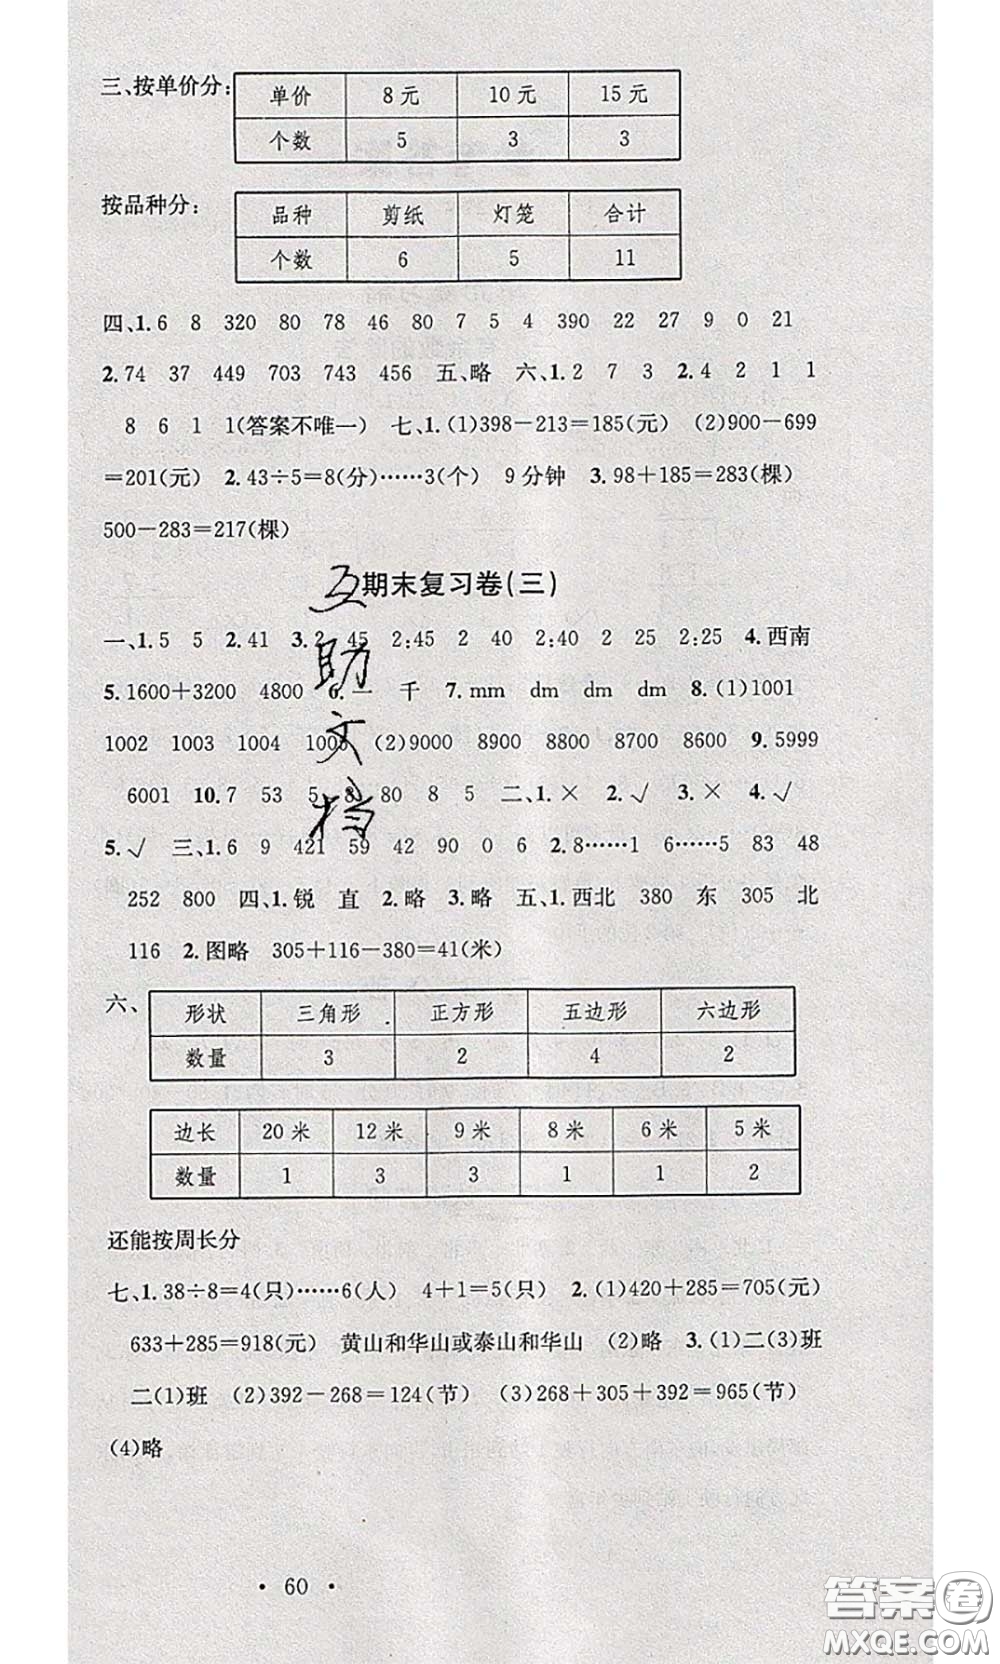 三、按单价分:
单价 8元 10元 15元
个数 5 3 3
按品种分:
品种 剪纸 灯笼 合计
个数 6 5 11
四、1.6 8 320 80 78 46 80 7 5 4 390 22 27 9 0 21
2.74 37 449 703 743 456 五、略 六、1.2 7 3 2.4 2 1 1
8 6 1 1(答案不唯一) 七、1.(1)398-213=185(元) (2)900-699
=201(元) 2.43÷5=8(分)……3(个) 9分钟 3.98+185=283(棵)
500-283=217(棵)
期末复习卷(三)
一、1.5 5 2.41 3.2 45 2:45 2 40 2:40 2 25 2:25 4.西南
5.1600+3200 4800 6.一 千 7.mm dm dm dm 8.(1)1001
1002 1003 1004 1005 (2)9000 8900 8800 8700 8600 9.5999
6001 10.7 53 5 8 80 8 5 二、1.× 2.√ 3.× 4.√
5.√ 三、1.6 9 421 59 42 90 0 6 2.8……1 6……5 83 48
252 800 四、1.锐 直 2.略 3.略 五、1.西北 380 东 305 北
116 2.图略 305+116-380=41(米)
六、
形状 三角形 正方形 五边形 六边形
数量 3 2 4 2
边长 20米 12米 9米 8米 6米 5米
数量 1 3 3 1 1 2
还能按周长分
七、1.38÷8=4(只)……6(人) 4+1=5(只) 2.(1)420+285=705(元)
633+285=918(元) 黄山和华山或泰山和华山 (2)略 3.(1)二(3)班
二(1)班 (2)392-268=124(节) (3)268+305+392=965(节)
(4)略
·60·
互
助
文
档
答案圈
MXQE.COM